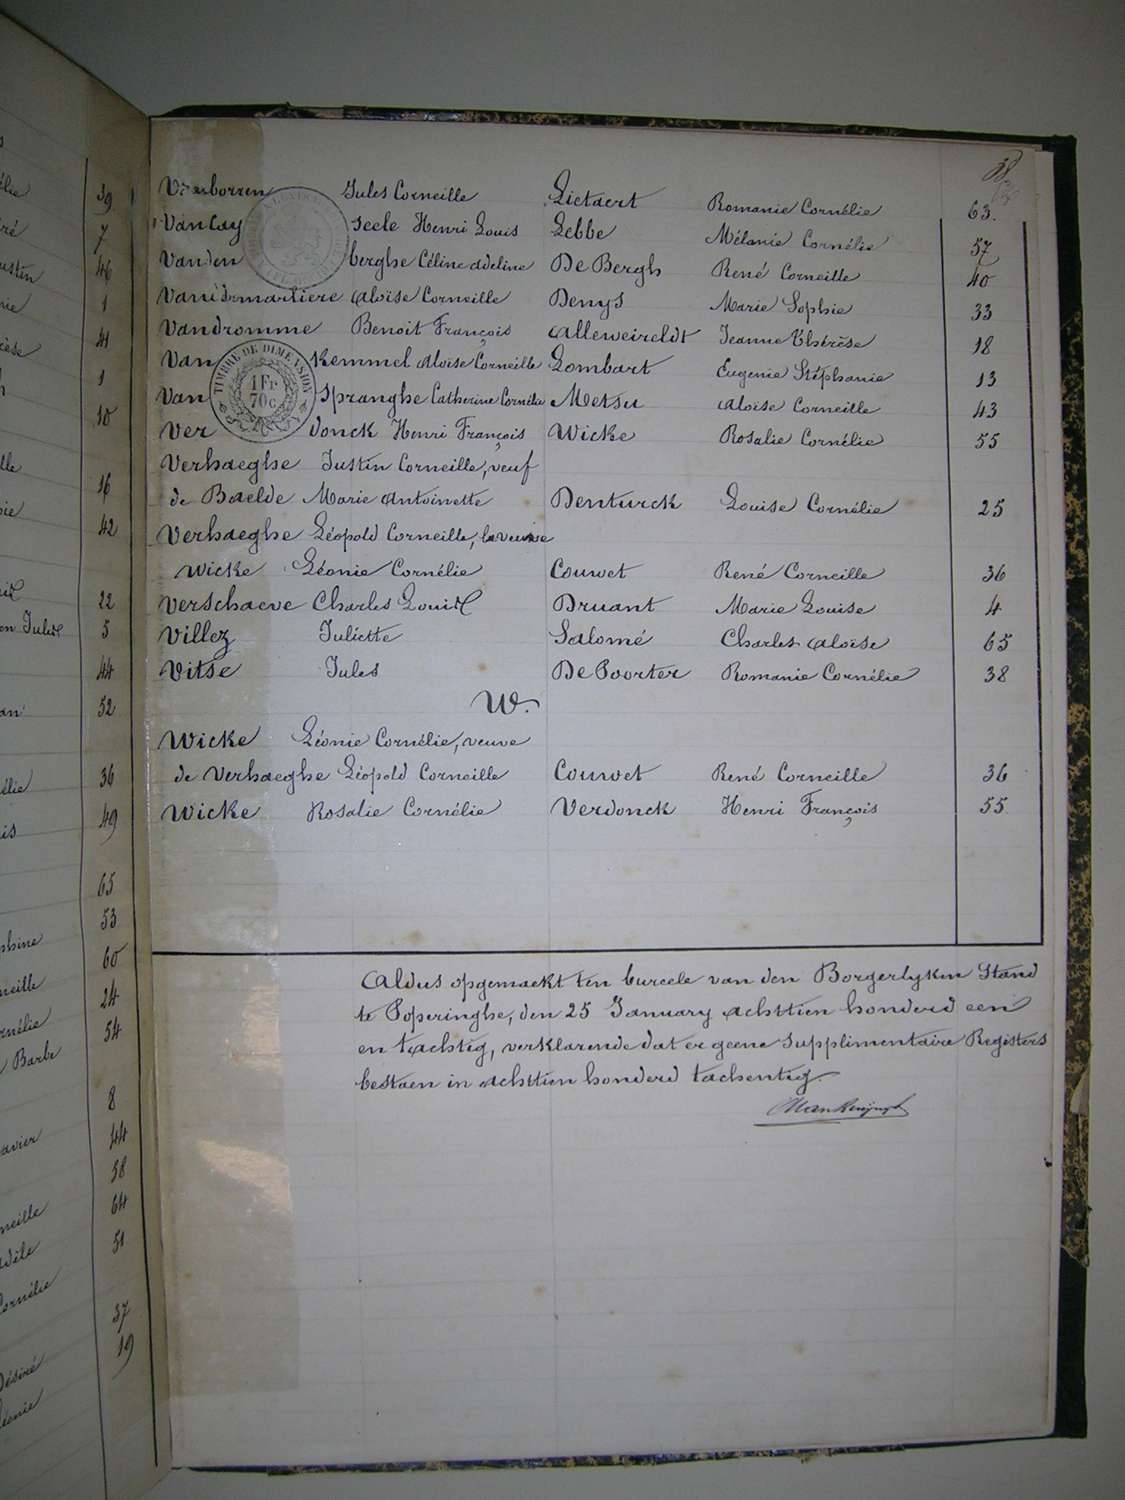 38
Vanborren Jules Corneille Lietaert Romanie Cornélie 63.
Vancay seele Henri Louis Lebbe Mélanie Cornélie 57
Vanden berghe Céline adeline De Bergh René Corneille 40
Vandermarliere Aloïse Corneille Denys Marie Sophie 33
Vandromme Benoit François Alleweireldt Jeanne Thérèse 18
Van Kemmel Aloïse Corneille Lombart Eugenie Stéphanie 13
Van Spranghe Catherine Cornélie Metsu Aloïse Corneille 43
Ver donck Henri François Wicke Rosalie Cornélie 55
Verhaeghe Justin Corneille, veuf
de Baelde Marie Antoinette Denturck Louise Cornélie 25
Verhaeghe Léopold Corneille, la veuve
Wicke Léonie Cornélie Couwet René Corneille 36
Verschaeve Charles Louis Druant Marie Louise 4
Villez Juliette Salomé Charles Aloïse 65
Vitse Jules De Poorter Romanie Cornélie 38
W.
Wicke Léonie Cornélie, veuve
de Verhaeghe Léopold Corneille Couwet René Corneille 36
Wicke Rosalie Cornélie Verdonck Henri François 55
TIMBRE DE DIMENSION
1 Fr.
70 c.
Aldus opgemaekt ten bureele van den Borgerlyken Stand
te Poperinghe, den 25 January achttien honderd een
en tachtig, verklarende dat er geene supplimentaire Registers
bestaen in achttien honderd tachentig.
39
7
46
1
41
1
10
16
42
22
5
44
52
36
49
65
53
60
24
54
8
44
38
64
51
37
19